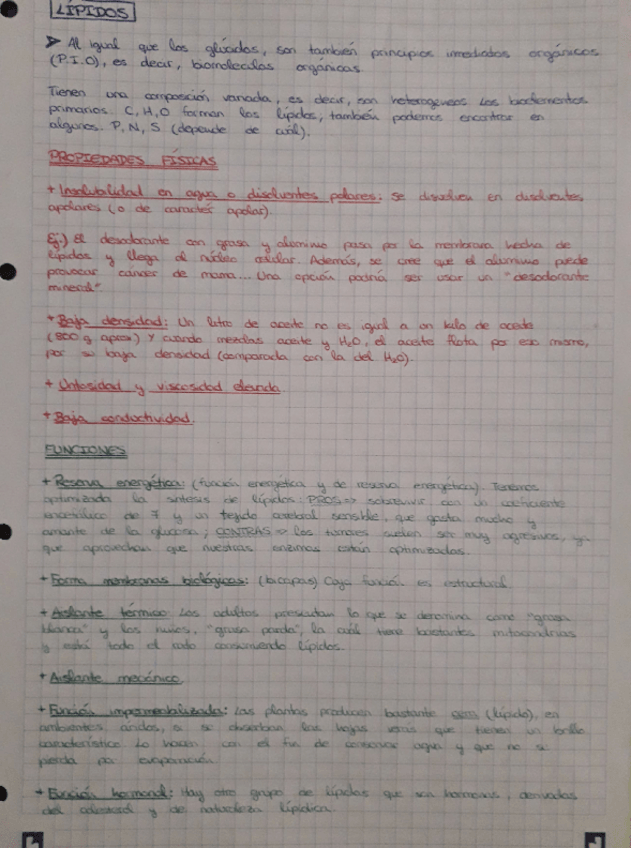 LÍPIDOS
➤ Al igual que los glúcidos, son también principios inmediatos orgánicos
(P.I.O), es decir, biomoléculas orgánicas.
Tienen una composición variada, es decir, son heterogéneos. Los bioelementos
primarios C, H, O forman los lípidos; también podemos encontrar en
algunos P, N, S (depende de cuál).
PROPIEDADES FÍSICAS
+ Insolubilidad en agua o disolventes polares: se disuelven en disolventes
apolares (o de carácter apolar).
Ej:) El desodorante con grasa y aluminio pasa por la membrana hecha de
lípidos y llega al núcleo celular. Además, se cree que el aluminio puede
provocar cáncer de mama... Una opción podría ser usar un "desodorante
mineral"
+ Baja densidad: Un litro de aceite no es igual a un kilo de aceite
(800 g aprox) y cuando mezclas aceite y H₂O, el aceite flota por eso mismo,
por su baja densidad (comparada con la del H₂O).
+ Untosidad y viscosidad elevada
+ Baja conductividad.
FUNCIONES
+ Reserva energética: (función energética y de reserva energética). Tenemos
optimizada la síntesis de lípidos: PROS => sobrevivir con un coeficiente
encefálico de 7 y un tejido cerebral sensible, que gasta mucho y
amante de la glucosa; CONTRAS => los tumores suelen ser muy agresivos, ya
que aprovechan que nuestras enzimas están optimizadas.
+ Forma membranas biológicas: (bicapas) Cuya función es estructural
+ Aislante térmico: Los adultos presentan lo que se denomina como "grasa
blanca" y los niños, "grasa parda", la cuál tiene bastantes mitocondrias
y está todo el rato consumiendo lípidos.
+ Aislante mecánico
+ Función impermeabilizada: Las plantas producen bastante cera (lípido), en
ambientes áridos, o se observan las hojas que tienen un brillo
característico. Lo hacen con el fin de conservar agua y que no se
pierda por evaporación.
+ Función hormonal: Hay otro grupo de lípidos que son hormonas, derivadas
del colesterol y de naturaleza lipídica.